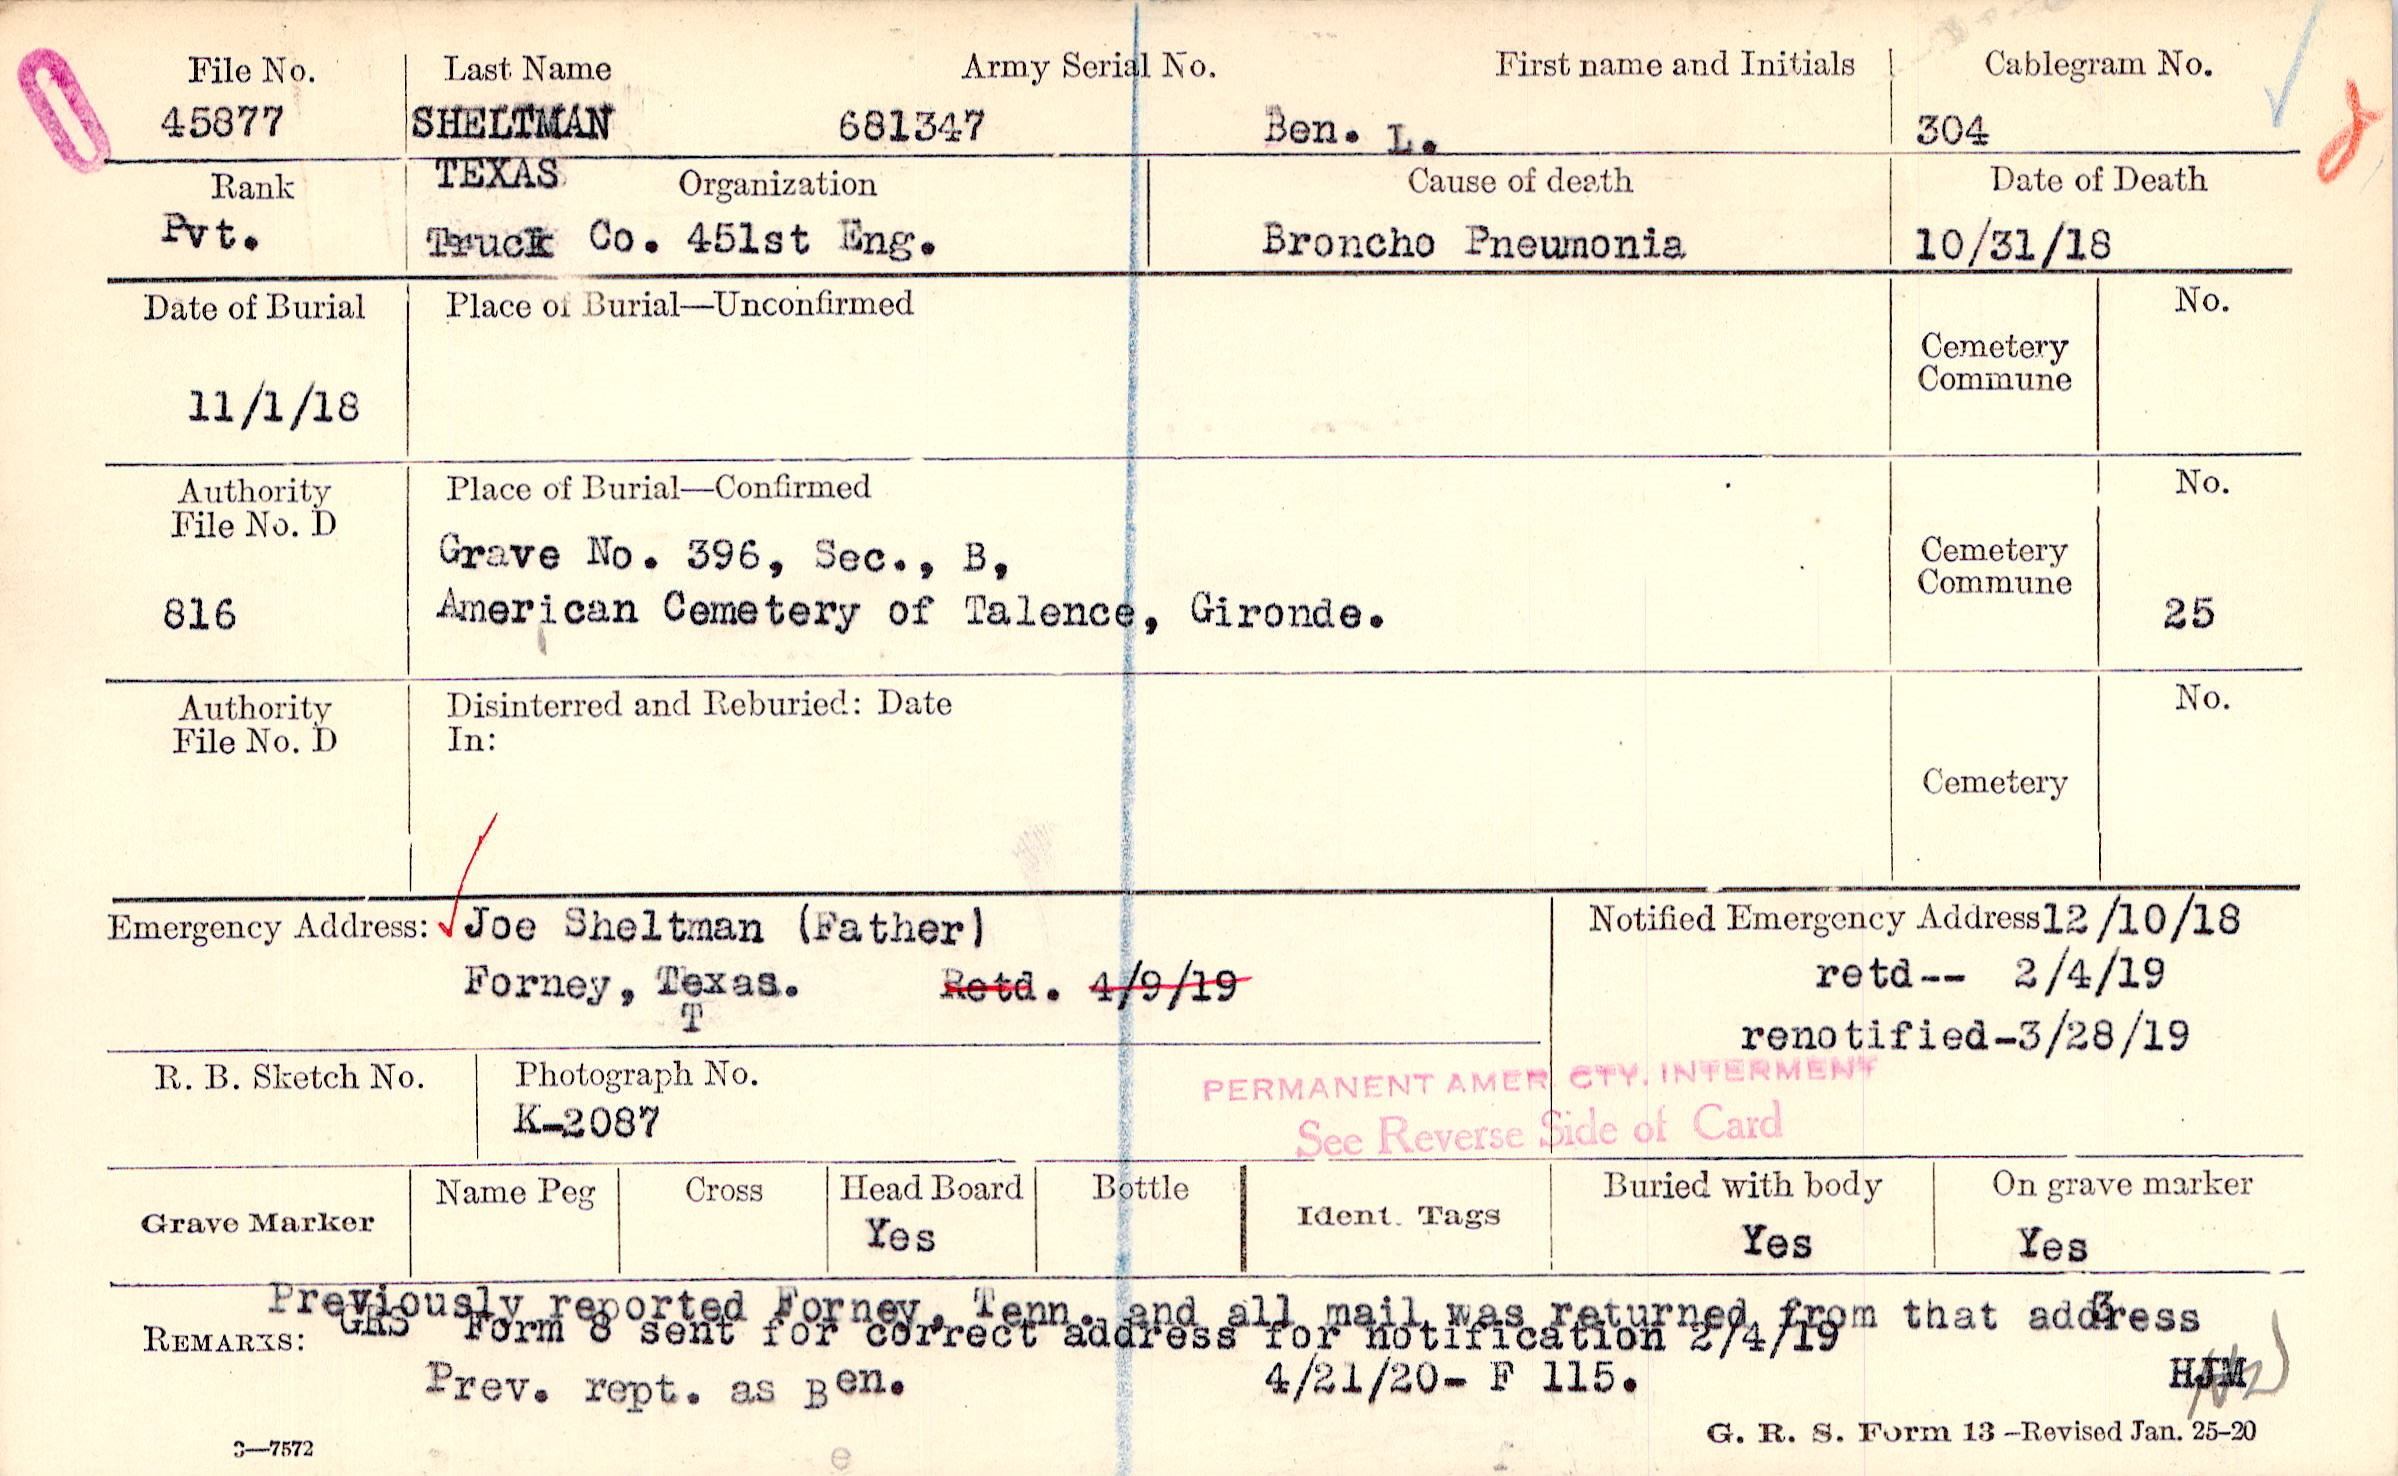 File No. Last Name Army Serial No. First name and Initials Cablegram No.
45877 SHELTMAN 681347 Ben. L. 304
Rank TEXAS Organization Cause of death Date of Death
Pvt. Truck Co. 451st Eng. Broncho Pneumonia 10/31/18
Date of Burial Place of Burial—Unconfirmed No.
Cemetery
Commune
11/1/18
Authority Place of Burial—Confirmed No.
File No. D
Grave No. 396, Sec., B, Cemetery
Commune
816 American Cemetery of Talence, Gironde. 25
Authority Disinterred and Reburied: Date No.
File No. D In:
Cemetery
Emergency Address: Joe Sheltman (Father) Notified Emergency Address 12/10/18
Forney, Texas. Retd. 4/9/19 retd-- 2/4/19
T
renotified-3/28/19
R. B. Sketch No. Photograph No.
K-2087
PERMANENT AMER CTY. INTERMENT
See Reverse Side of Card
Grave Marker Name Peg Cross Head Board Bottle Ident. Tags Buried with body On grave marker
Yes Yes Yes
Previously reported Forney, Tenn. and all mail was returned from that address
REMARKS: GRS Form 8 sent for correct address for notification 2/4/19
Prev. rept. as Ben. 4/21/20- F 115. HJM
3—7572 G. R. S. Form 13 —Revised Jan. 25-20